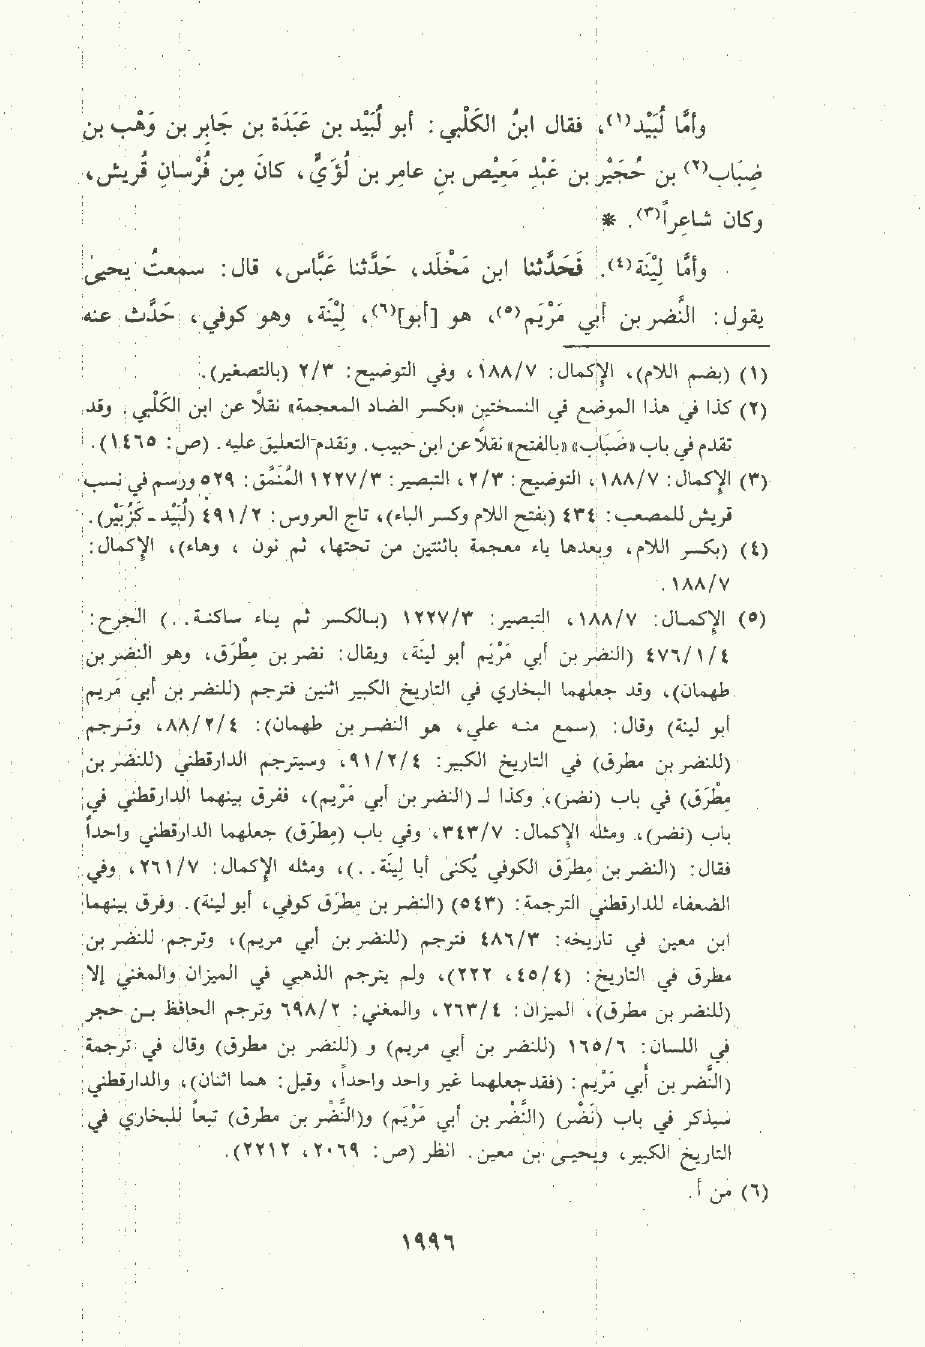 وأمَّا لُبَيْد(١)، فقال ابنُ الكَلْبي: أبو لُبَيْد بن عَبَدَة بن جَابِر بن وَهْب بن
ضِبَاب(٢) بن حُجَيْر بن عَبْدِ مَعِيْص بنِ عامِر بن لُؤَيٍّ، كانَ مِن فُرْسانِ قُريش،
وكان شاعِراً(٣). *
وأمَّا لِيْنَة(٤). فَحَدَّثنا ابن مَخْلَد، حَدَّثنا عَبَّاس، قال: سمعتُ يحيىٰ
يقول: النَّضر بن أبي مَرْيَم(٥)، هو [أبو](٦)، لِيْنَة، وهو كوفي، حَدَّث عنه
(١) (بضم اللام)، الإكمال: ١٨٨/٧، وفي التوضيح: ٢/٣ (بالتصغير).
(٢) كذا في هذا الموضع في النسختين «بكسر الضاد المعجمة» نقلاً عن ابن الكَلْبي. وقد
تقدم في باب «ضَبَاب» «بالفتح» نقلاً عن ابن حبيب. وتقدم التعليق عليه. (ص: ١٤٦٥).
(٣) الإكمال: ١٨٨/٧، التوضيح: ٢/٣، التبصير: ١٢٢٧/٣ المُنَمَّق: ٥٢٩ ورسم في نسب
قريش للمصعب: ٤٣٤ (بفتح اللام وكسر الباء)، تاج العروس: ٤٩١/٢ (لُبَيْد - كزُبَيْر).
(٤) (بكسر اللام، وبعدها ياء معجمة باثنتين من تحتها، ثم نون ، وهاء)، الإكمال:
١٨٨/٧.
(٥) الإكمال: ١٨٨/٧، التبصير: ١٢٢٧/٣ (بالكسر ثم ياء ساكنة..) الجرح:
٤٧٦/١/٤ (النضر بن أبي مَرْيم أبو لينة، ويقال: نضر بن مِطْرَق، وهو النضر بن
طهمان)، وقد جعلهما البخاري في التاريخ الكبير اثنين فترجم (للنضر بن أبي مَريم
أبو لينة) وقال: (سمع منه علي، هو النضر بن طهمان): ٨٨/٢/٤، وترجم
(للنضر بن مطرق) في التاريخ الكبير: ٩١/٢/٤، وسيترجم الدارقطني (للنضر بن
مِطْرَق) في باب (نضر)، وكذا لـ (النضر بن أبي مَرْيم)، ففرق بينهما الدارقطني في
باب (نضر)، ومثله الإكمال: ٣٤٣/٧، وفي باب (مِطرَق) جعلهما الدارقطني واحداً
فقال: (النضر بن مِطرَق الكوفي يُكنىٰ أبا لِينَة..)، ومثله الإكمال: ٢٦١/٧، وفي
الضعفاء للدارقطني الترجمة: (٥٤٣) (النضر بن مِطرَق كوفي، أبو لينة). وفرق بينهما
ابن معين في تاريخه: ٤٨٦/٣ فترجم (للنضر بن أبي مريم)، وترجم للنضر بن
مطرق في التاريخ: (٤٥/٤، ٢٢٢)، ولم يترجم الذهبي في الميزان والمغني إلا
(للنضر بن مطرق)، الميزان: ٢٦٣/٤، والمغني: ٦٩٨/٢ وترجم الحافظ بن حجر
في اللسان: ١٦٥/٦ (للنضر بن أبي مريم) و (للنضر بن مطرق) وقال في ترجمة
(النَّضر بن أبي مَرْيم: (فقدجعلهما غير واحد واحداً، وقيل: هما اثنان)، والدارقطني
سيذكر في باب (نَضْر) (النَّضْر بن أبي مَرْيَم) و(النَّضْر بن مطرق) تبعاً للبخاري في
التاريخ الكبير، ويحيىٰ بن معين. انظر (ص: ٢٠٦٩، ٢٢١٢).
(٦) من أ.
١٩٩٦